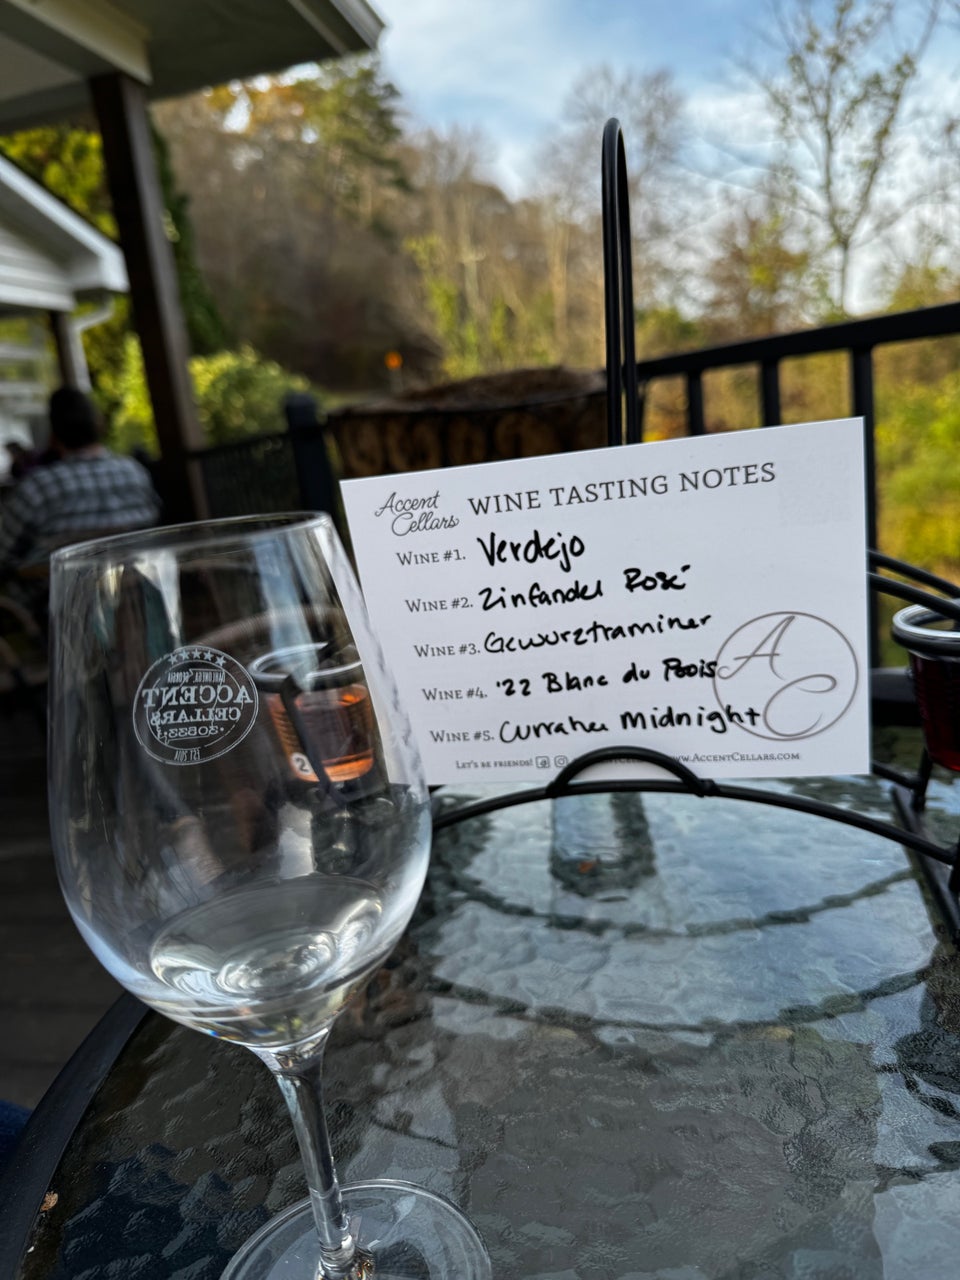 Accent Cellars
WINE TASTING NOTES
WINE #1. Verdejo
WINE #2. Zinfandel Rosé
WINE #3. Gewurztraminer
WINE #4. '22 Blanc du Bois
WINE #5. Currahee Midnight
A C
LET'S BE FRIENDS!
WWW.ACCENTCELLARS.COM
DAHLONEGA, GEORGIA
ACCENT
CELLARS
30533
EST 2014
2